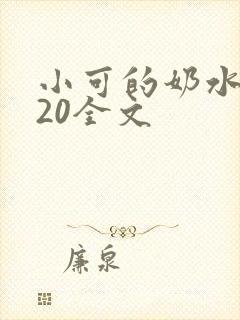 小可的奶水
20全文
廉泉